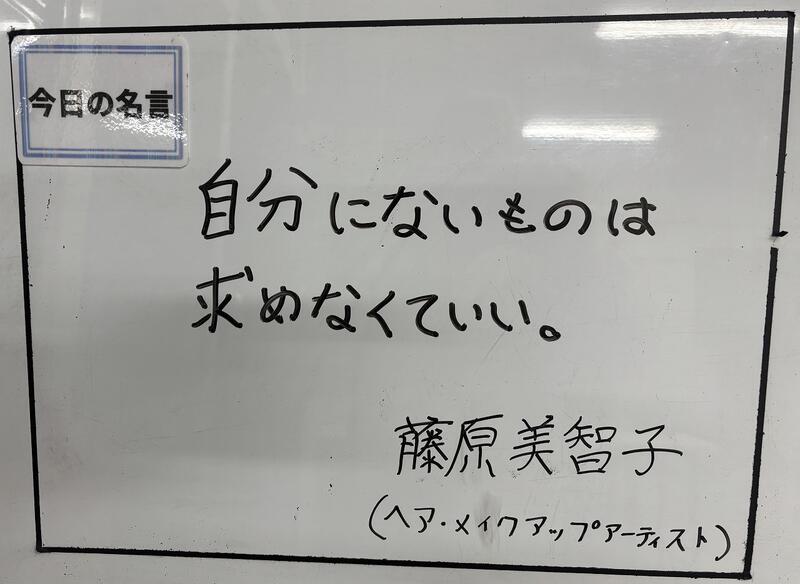 今日の名言
自分にないものは
求めなくていい。
藤原美智子
(ヘア・メイクアップアーティスト)